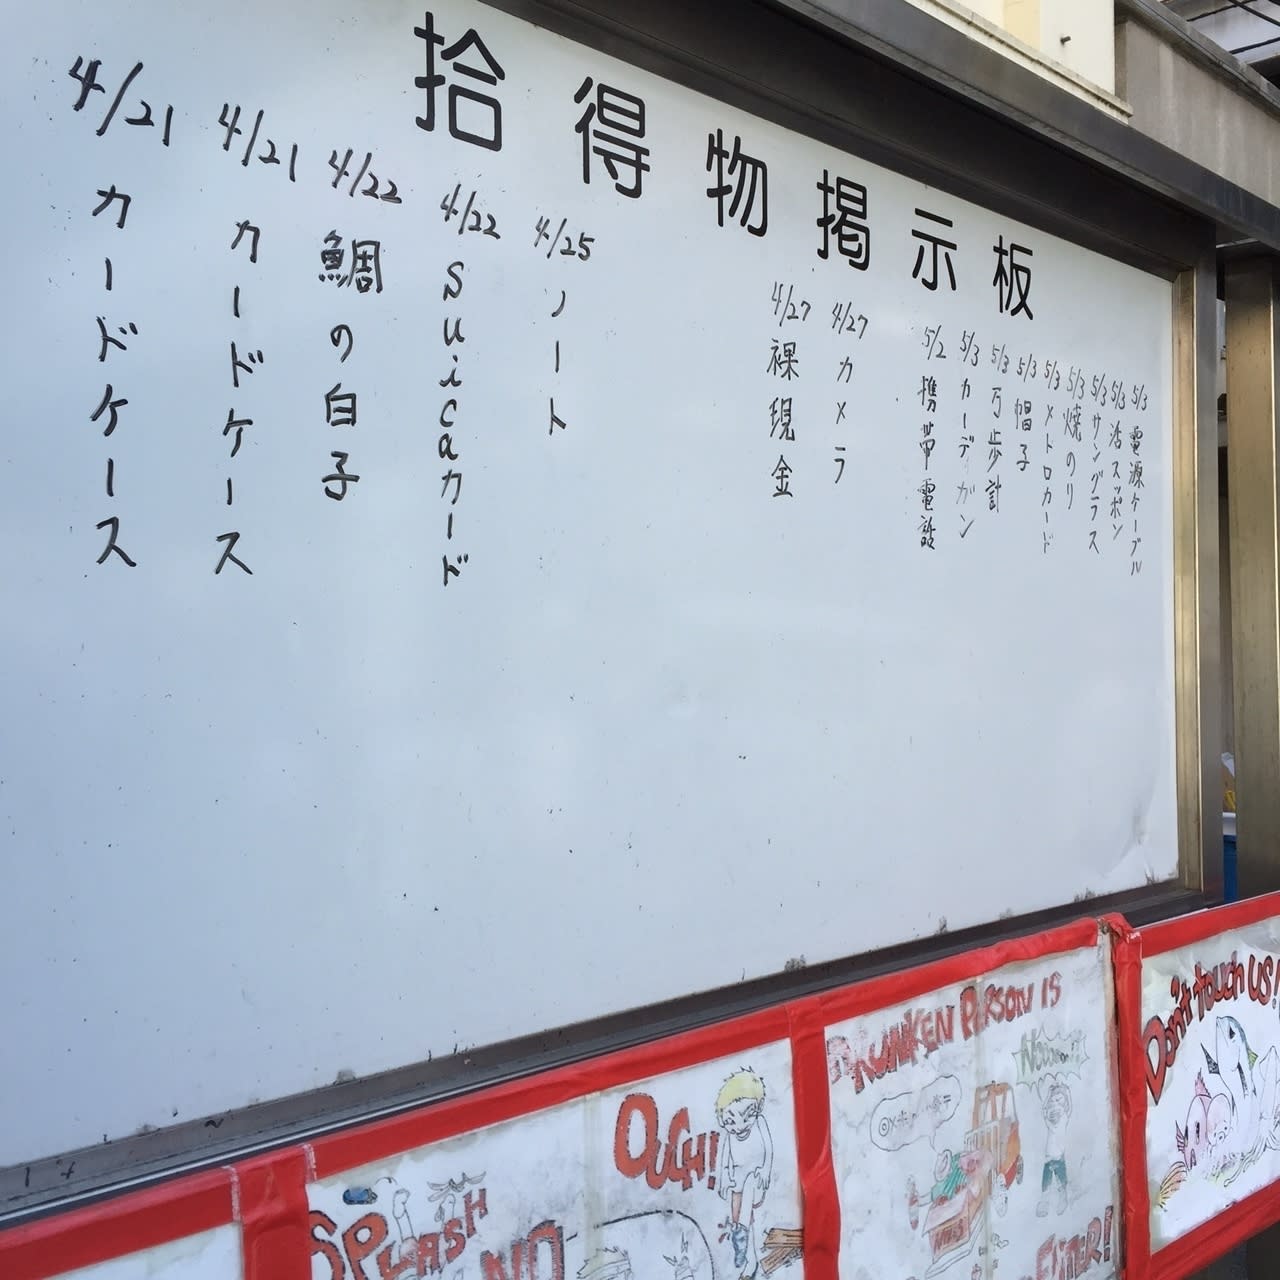 拾得物掲示板
5/3 電源ケーブル
5/3 活スッポン
5/3 サングラス
5/3 焼のり
5/3 メトロカード
5/3 帽子
5/3 万歩計
5/3 カーディガン
5/2 携帯電話
4/27 カメラ
4/27 裸現金
4/25 ノート
4/22 Suicaカード
4/22 鯛の白子
4/21 カードケース
4/21 カードケース
SPLASH
NO
OUCH!
DRUNKEN PERSON IS
ENTER!
Don't touch US!